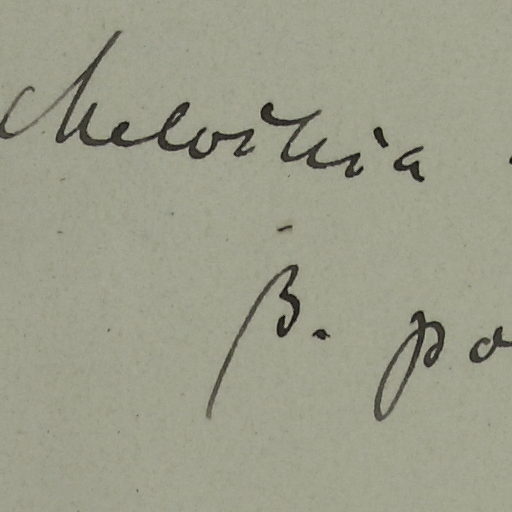 Melochia
β. po